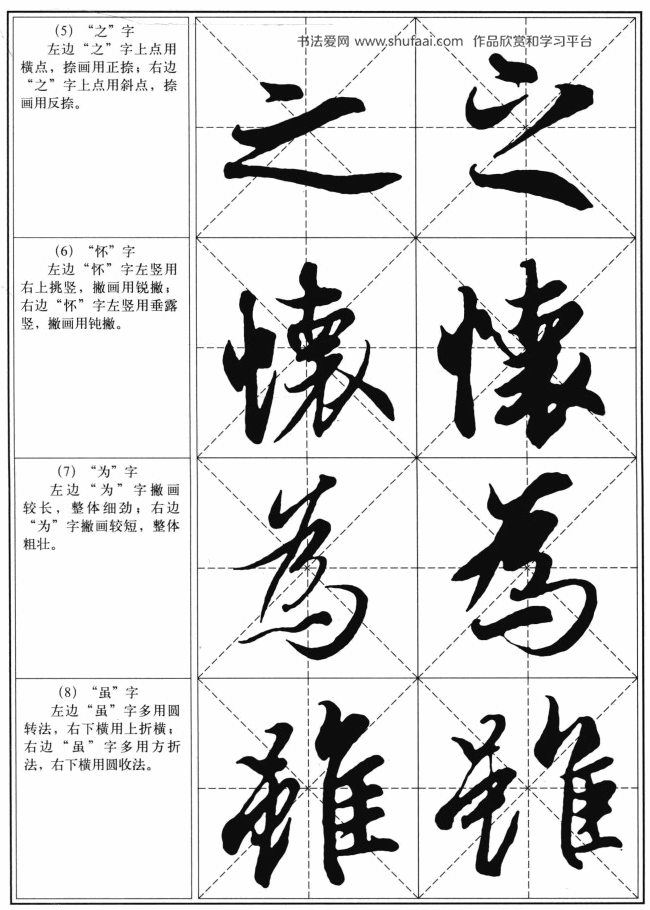 书法爱网 www.shufaai.com 作品欣赏和学习平台
(5) “之”字
左边“之”字上点用
横点，捺画用正捺；右边
“之”字上点用斜点，捺
画用反捺。
之 之
(6) “怀”字
左边“怀”字左竖用
右上挑竖，撇画用锐撇；
右边“怀”字左竖用垂露
竖，撇画用钝撇。
懷 懷
(7) “为”字
左边“为”字撇画
较长，整体细劲；右边
“为”字撇画较短，整体
粗壮。
為 為
(8) “虽”字
左边“虽”字多用圆
转法，右下横用上折横；
右边“虽”字多用方折
法，右下横用圆收法。
雖 雖